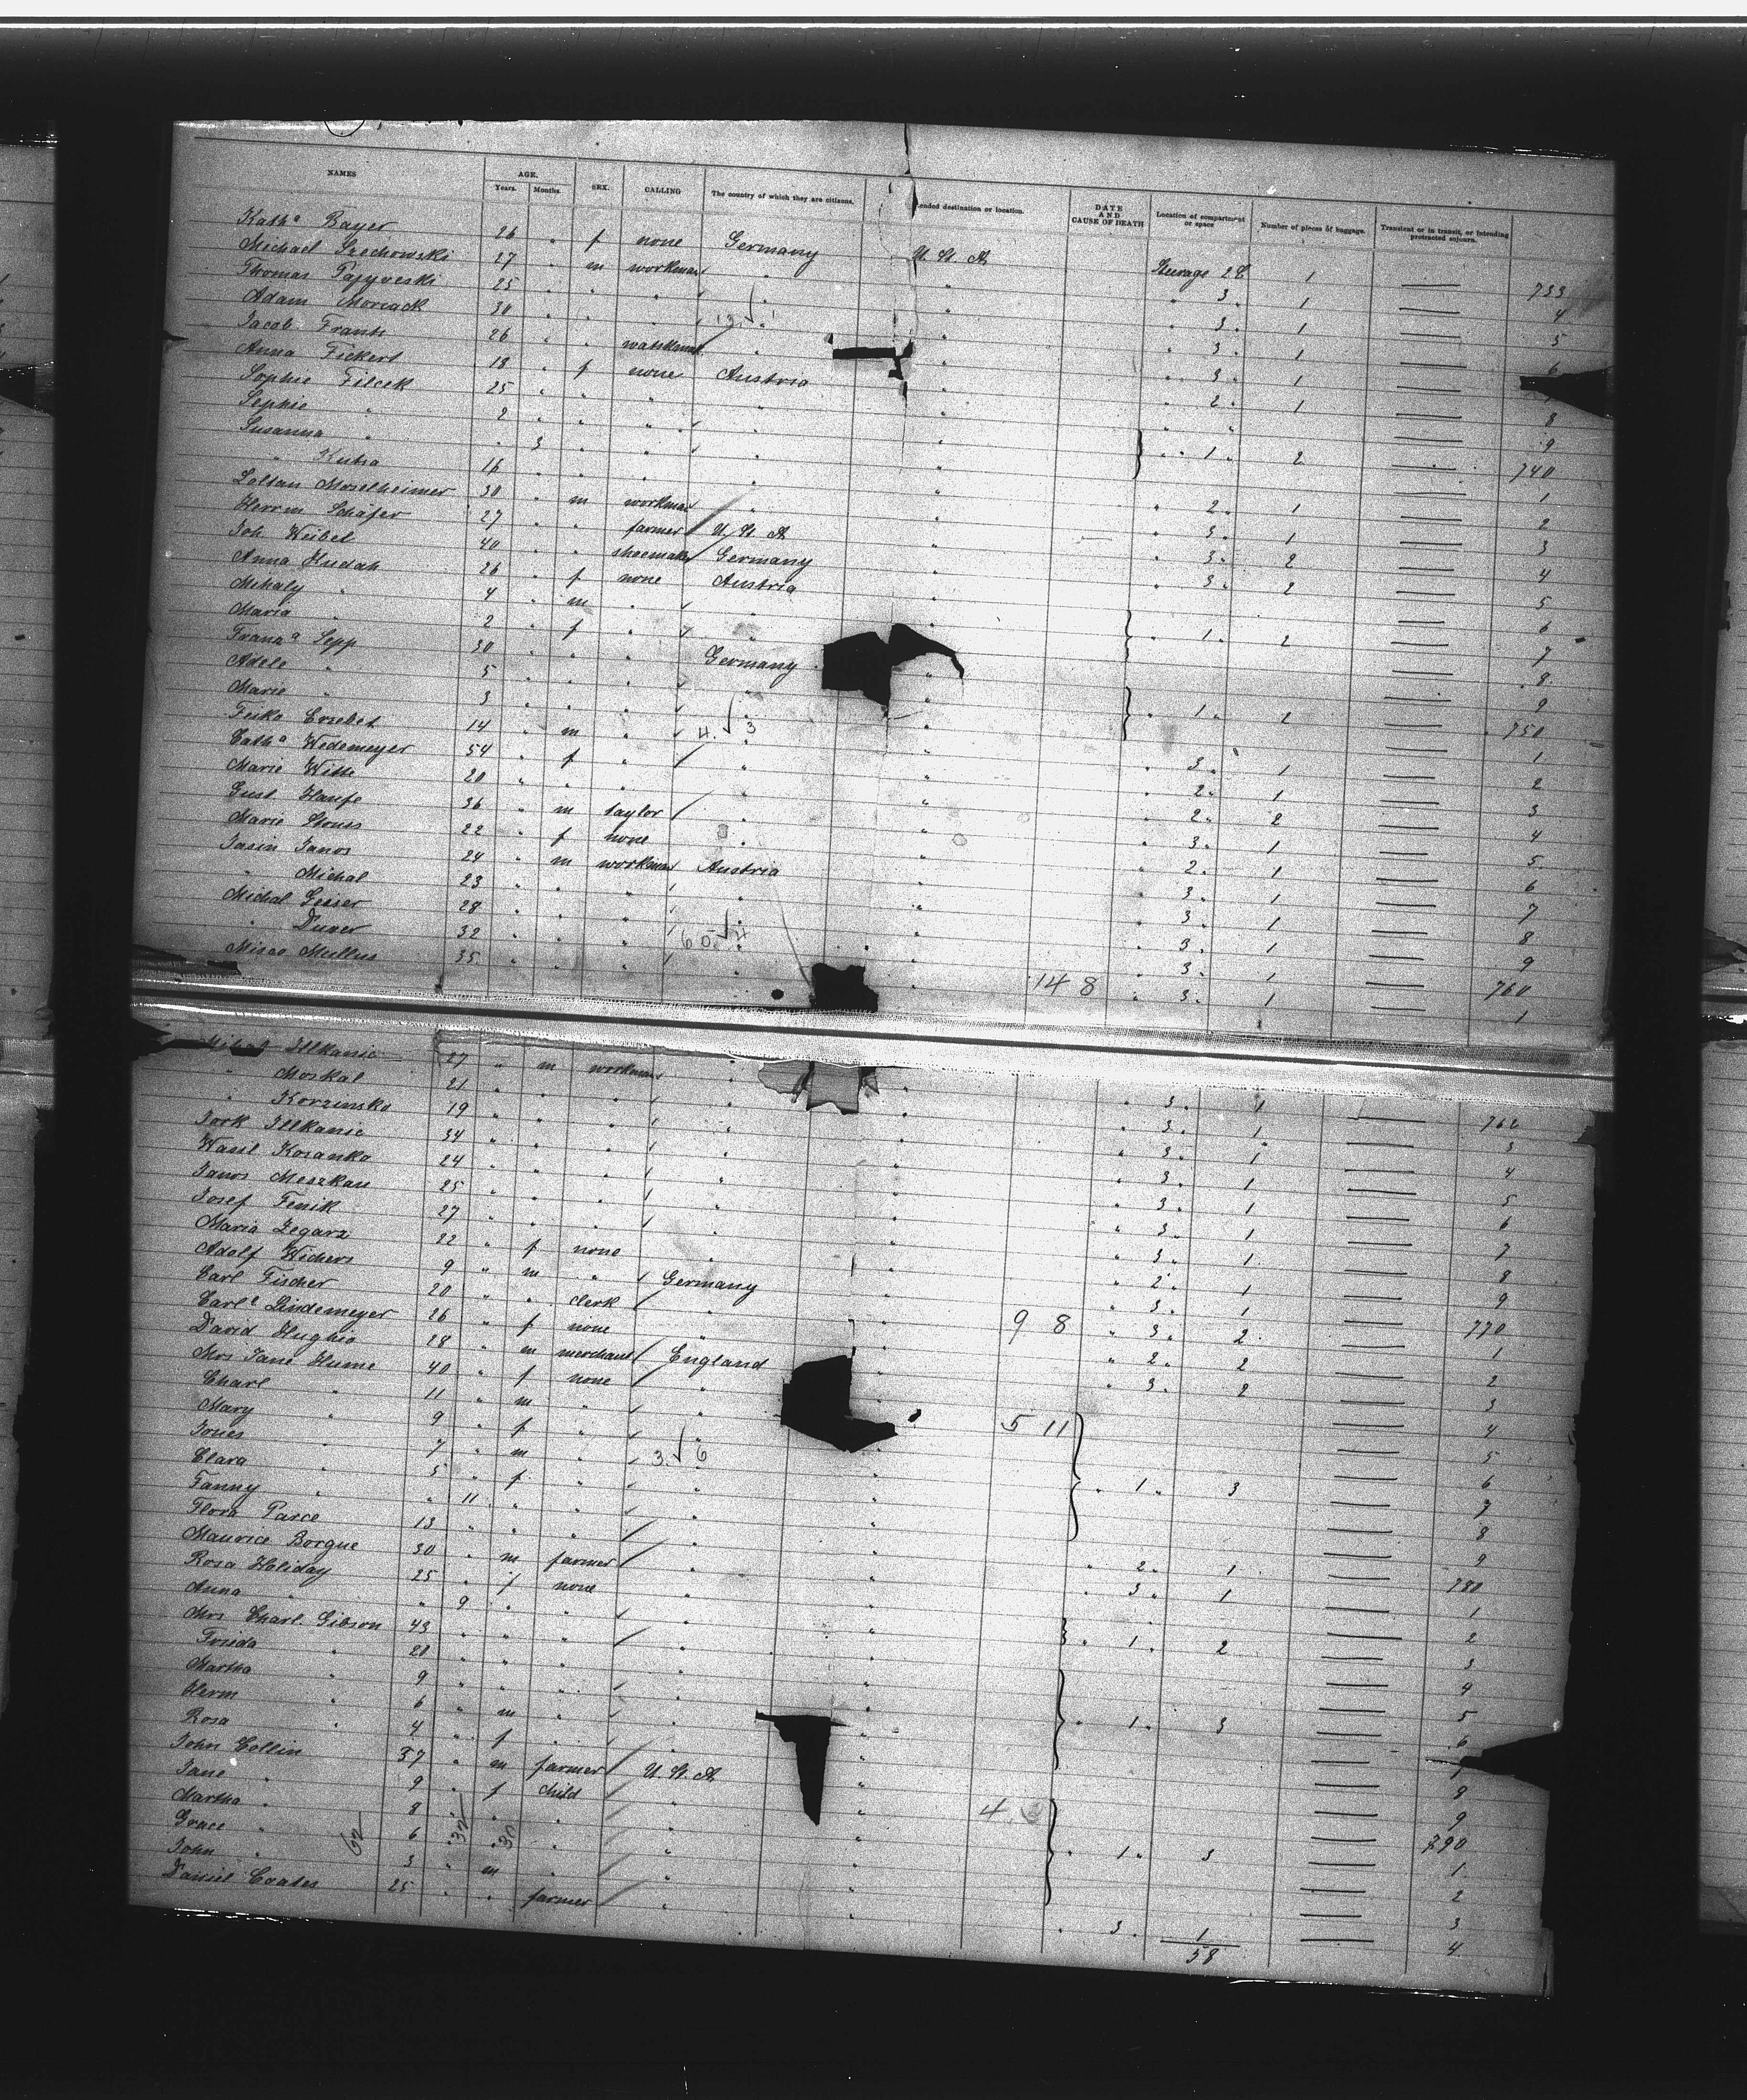 NAMES AGE. Years. Months. SEX. CALLING The country of which they are citizens. ended destination or location. DATE AND CAUSE OF DEATH Location of compartment or space Number of pieces of baggage. Transient or in transit, or intending protracted sojourn.
Kath^a Bayer 26 " f none Germany U. St. A. Steerage 2 1 — 733
Michael Szechowski 27 " m workman " " " 3 " 1 — 4
Thomas 25 " " " " " " 3 " 1 — 5
Adam 30 " " " " " " 3 " 1 — 6
Jacob Frank 26 " " " " " 3 " 1 —
Anna Fickert 18 " f none Austria " " 2 " 1 — 8
Sophie Filcek 25 " " " " " " " — 9
Sophie " 2 " " " " " — 740
Susanna " " 3 " " " " " 1 " 2 — 1
" 16 " " " " " " 2 " 1 — 2
Zoltan Moselheimer 30 " m workman " " " 3 " 1 — 3
Herrm Schäfer 27 " " farmer U. St. A. " " 3 " 2 — 4
Joh. Weibel 40 " " shoemaker Germany " " 3 " 2 — 5
Anna Hudak 26 " f none Austria " — 6
Mihaly " 4 " m " " " " 1 " 2 — 7
Maria " 2 " f " " — 8
Fran^a Sepp 30 " " " Germany " — 9
Adele " 5 " " " " " " 1 " 1 — 750
Marie " 3 " " " " " — 1
Feika Erzebet 14 " m " " " " 3 " 1 — 2
Cath^a Wedemeyer 54 " f " " " " 2 " 1 — 3
Marie Witte 20 " " " " " " 2 " 2 — 4
Gust. Haufe 36 " m taylor " " " 3 " 1 — 5
Marie 22 " f none " " " 2 " 1 — 6
Jasin Janos 24 " m workman Austria " " 3 " 1 — 7
" Michal 23 " " " " " " 3 " 1 — 8
Michal Geiser 28 " " " " " " 3 " 1 — 9
" 32 " " " " " " 3 " 1 — 760
35 " " " " " 14 8 " 3 " 1 — 1
Illkanic 27 " m workman " " " 3 " 1 — 762
" Moskal 21 " " " " " " 3 " 1 — 3
" Korzinsko 19 " " " " " " 3 " 1 — 4
Jork Illkanic 34 " " " " " " 3 " 1 — 5
Wasil Kosanko 24 " " " " " " 3 " 1 — 6
Janos Meszkan 25 " " " " " " 3 " 1 — 7
Josef Fenik 27 " " " " " " 3 " 1 — 8
Maria Zegarz 22 " f none " " " 2 " 1 — 9
Adolf Wichers 9 " m " Germany " " 3 " 1 — 770
Carl Fischer 20 " " clerk " " 9 8 " 3 " 2 — 1
Carl^e Lindemeyer 26 " f none " " " 2 " 2 — 2
David Hughis 28 " m merchant England " " 3 " 2 — 3
Mrs Jane Hume 40 " f none " " — 4
Charl " 11 " m " " " 5 11 — 5
Mary " 9 " f " " " — 6
Jones " 7 " m " " " " 1 " 3 — 7
Clara " 5 " f " " " — 8
Fanny " " 11 " " " " — 9
Flora Parce 13 " " " " " " 2 " 1 — 780
Maurice Borgue 30 " m farmer " " " 3 " 1 — 1
Rosa Holiday 25 " f none " " — 2
Anna " " 9 " " " " " 1 " 2 — 3
Mrs Charl. Gibson 43 " " " " " — 4
" " " " " " — 5
Martha " 9 " " " " " " 1 " 3 — 6
Herm " 6 " m " " "
Rosa " 4 " f " " " — 8
John Collin 37 " m farmer U. St. A. " — 9
Jane " 9 " f child " " 4 — 790
Martha " 8 " " " " " " 1 " 3 — 1
Grace " 6 " " " " " — 2
John " 3 " m " " " — 3
Daniel Coates 25 " " farmer " " " 3 " 1 — 4
58